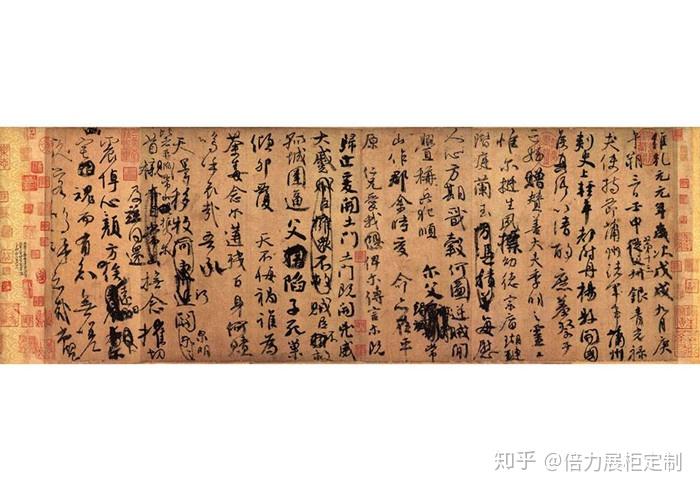 維乾元元年歲次戊戌九月庚
午朔三日壬申第十三叔銀青光祿
夫使持節蒲州諸軍事蒲州
刺史上輕車都尉丹楊縣開國
侯真卿以清酌庶羞祭于
亡姪贈贊善大夫季明之靈曰
惟爾挺生夙標幼德宗廟瑚璉
階庭蘭玉每慰
人心方期戩穀何圖逆賊閒
釁稱兵犯順爾父竭誠常
山作郡余時受命亦在平
原仁兄愛我俾爾傳言爾既
歸止爰開土門土門既開兇威
大蹙賊臣不救
孤城圍逼父陷子死巢
傾卵覆天不悔禍誰為
荼毒念爾遘殘百身何贖
嗚呼哀哉吾承
天澤移牧河關泉明
比者再陷常山攜爾
首櫬及茲同還撫念摧切
震悼心顏方俟
魂而有知無嗟
久客嗚呼哀哉尚饗
知乎 @倍力展柜定制